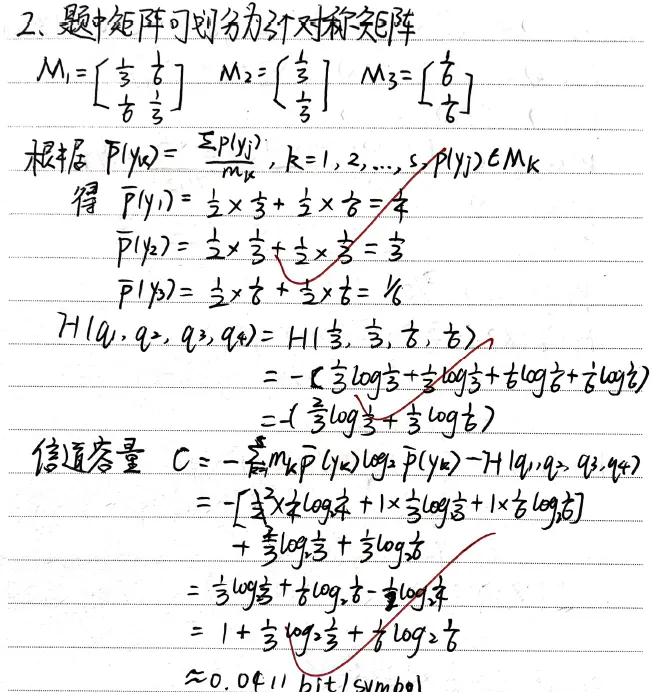 2、题中矩阵可划分为3个对称矩阵
M₁=[1/3 1/6; 1/6 1/3] M₂=[1/3; 1/3] M₃=[1/6; 1/6]
根据 p̄(yₖ)= Σp(yⱼ)/mₖ, k=1, 2, ..., s, p(yⱼ)∈Mₖ
得 p̄(y₁)= 1/2 × 1/3 + 1/2 × 1/6 = 1/4
p̄(y₂)= 1/2 × 1/3 + 1/2 × 1/3 = 1/3
p̄(y₃)= 1/2 × 1/6 + 1/2 × 1/6 = 1/6
H(q₁, q₂, q₃, q₄)= H(1/3, 1/3, 1/6, 1/6)
= -(1/3 log 1/3 + 1/3 log 1/3 + 1/6 log 1/6 + 1/6 log 1/6)
= -(2/3 log 1/3 + 1/3 log 1/6)
信道容量 C = -Σ mₖ p̄(yₖ) log₂ p̄(yₖ) - H(q₁, q₂, q₃, q₄)
= -[2 × 1/4 log₂ 1/4 + 1× 1/3 log₂ 1/3 + 1× 1/6 log₂ 1/6]
+ 2/3 log₂ 1/3 + 1/3 log₂ 1/6
= 1/3 log₂ 1/3 + 1/6 log₂ 1/6 - 1/2 log₂ 1/4
= 1 + 1/3 log₂ 1/3 + 1/6 log₂ 1/6
≈0.0411 bit/symbol